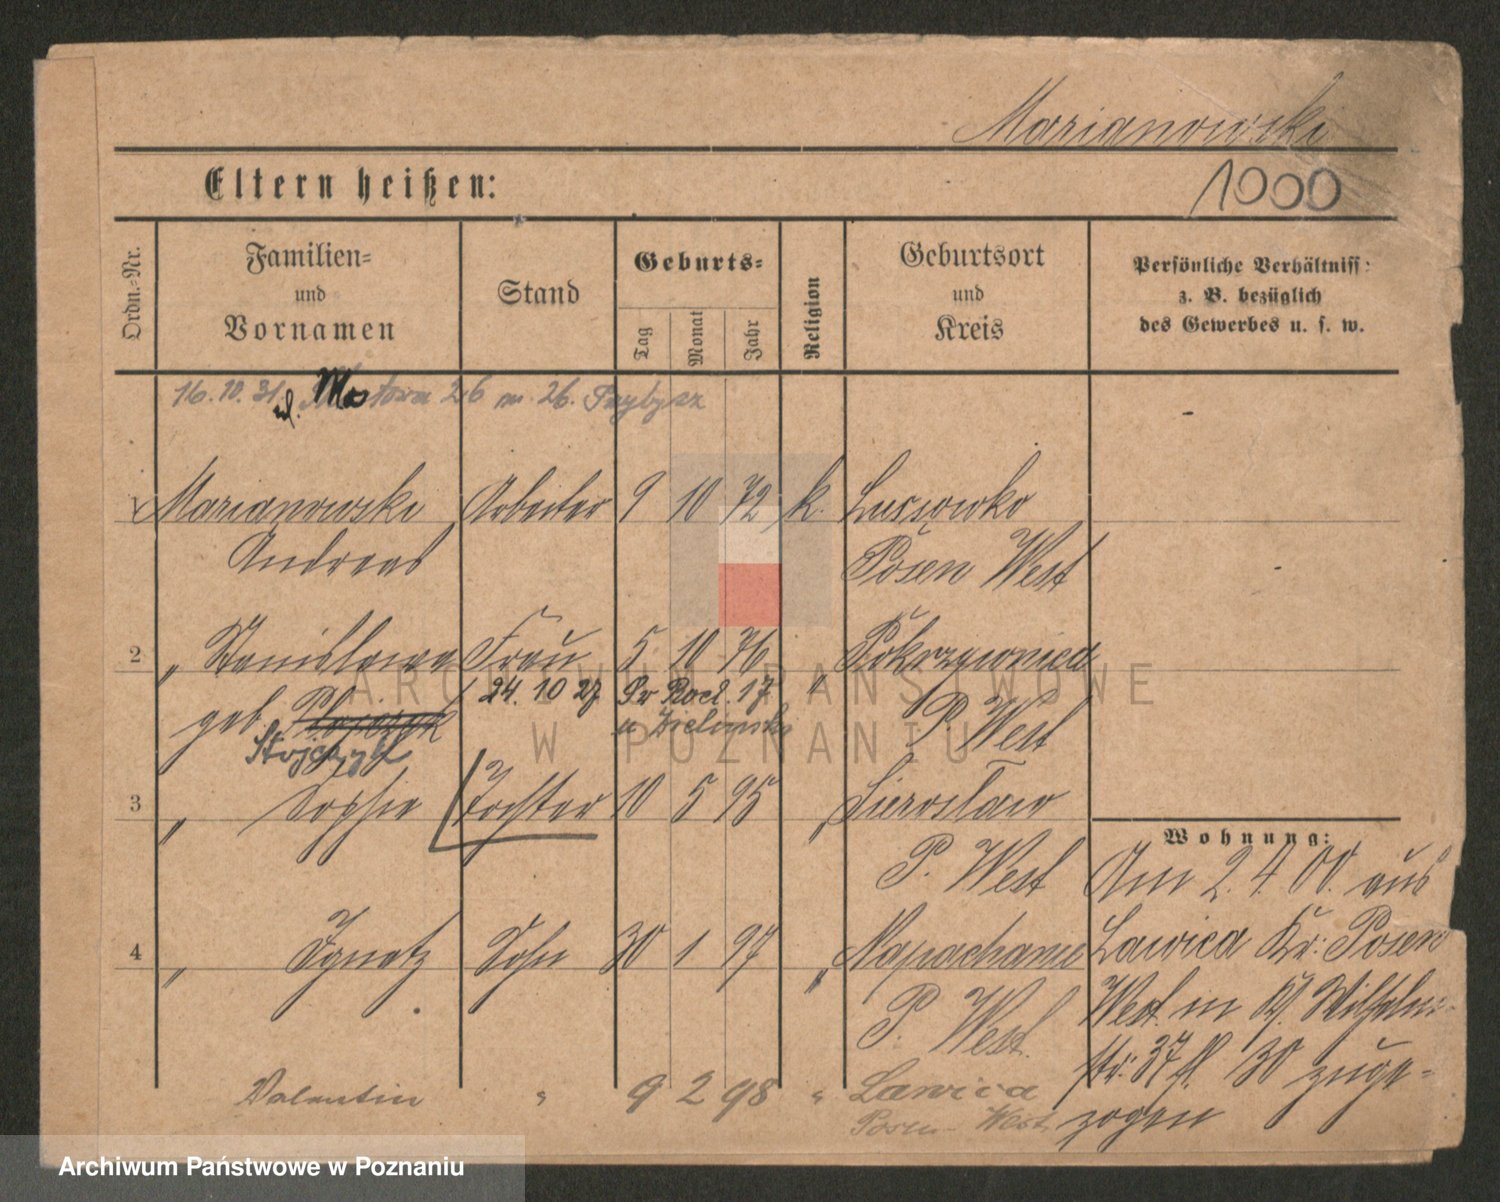 Marianowski
Eltern heißen:
1000
Ordn.-Nr.
Familien-
und
Vornamen
Stand
Geburts-
Tag
Monat
Jahr
Religion
Geburtsort
und
Kreis
Persönliche Verhältniss:
z. B. bezüglich
des Gewerbes u. s. w.
16. 10. 31. 26 m. 26.
1 Marianowski Arbeiter 9 10 72 k. Lussowko
Andreas Posen West
2 " Stanislawa Frau 5 10 76 " Pokrzywnica
24. 10 27
geb. P. West
Stojczyk
3 " Sophie Tochter 10 5 95 " Sieroslaw
P. West
4 " Ignatz Sohn 30 1 97 " Napachanie
P. West.
Valentin " 9 2 98 " Lawica
Posen West
Wohnung:
Am 2. 4. 00. aus
Lawica Kr: Posen
West in Wilhelm-
str: 37 30 zuge-
zogen
ARCHIWUM PAŃSTWOWE
W POZNANIU
Archiwum Państwowe w Poznaniu